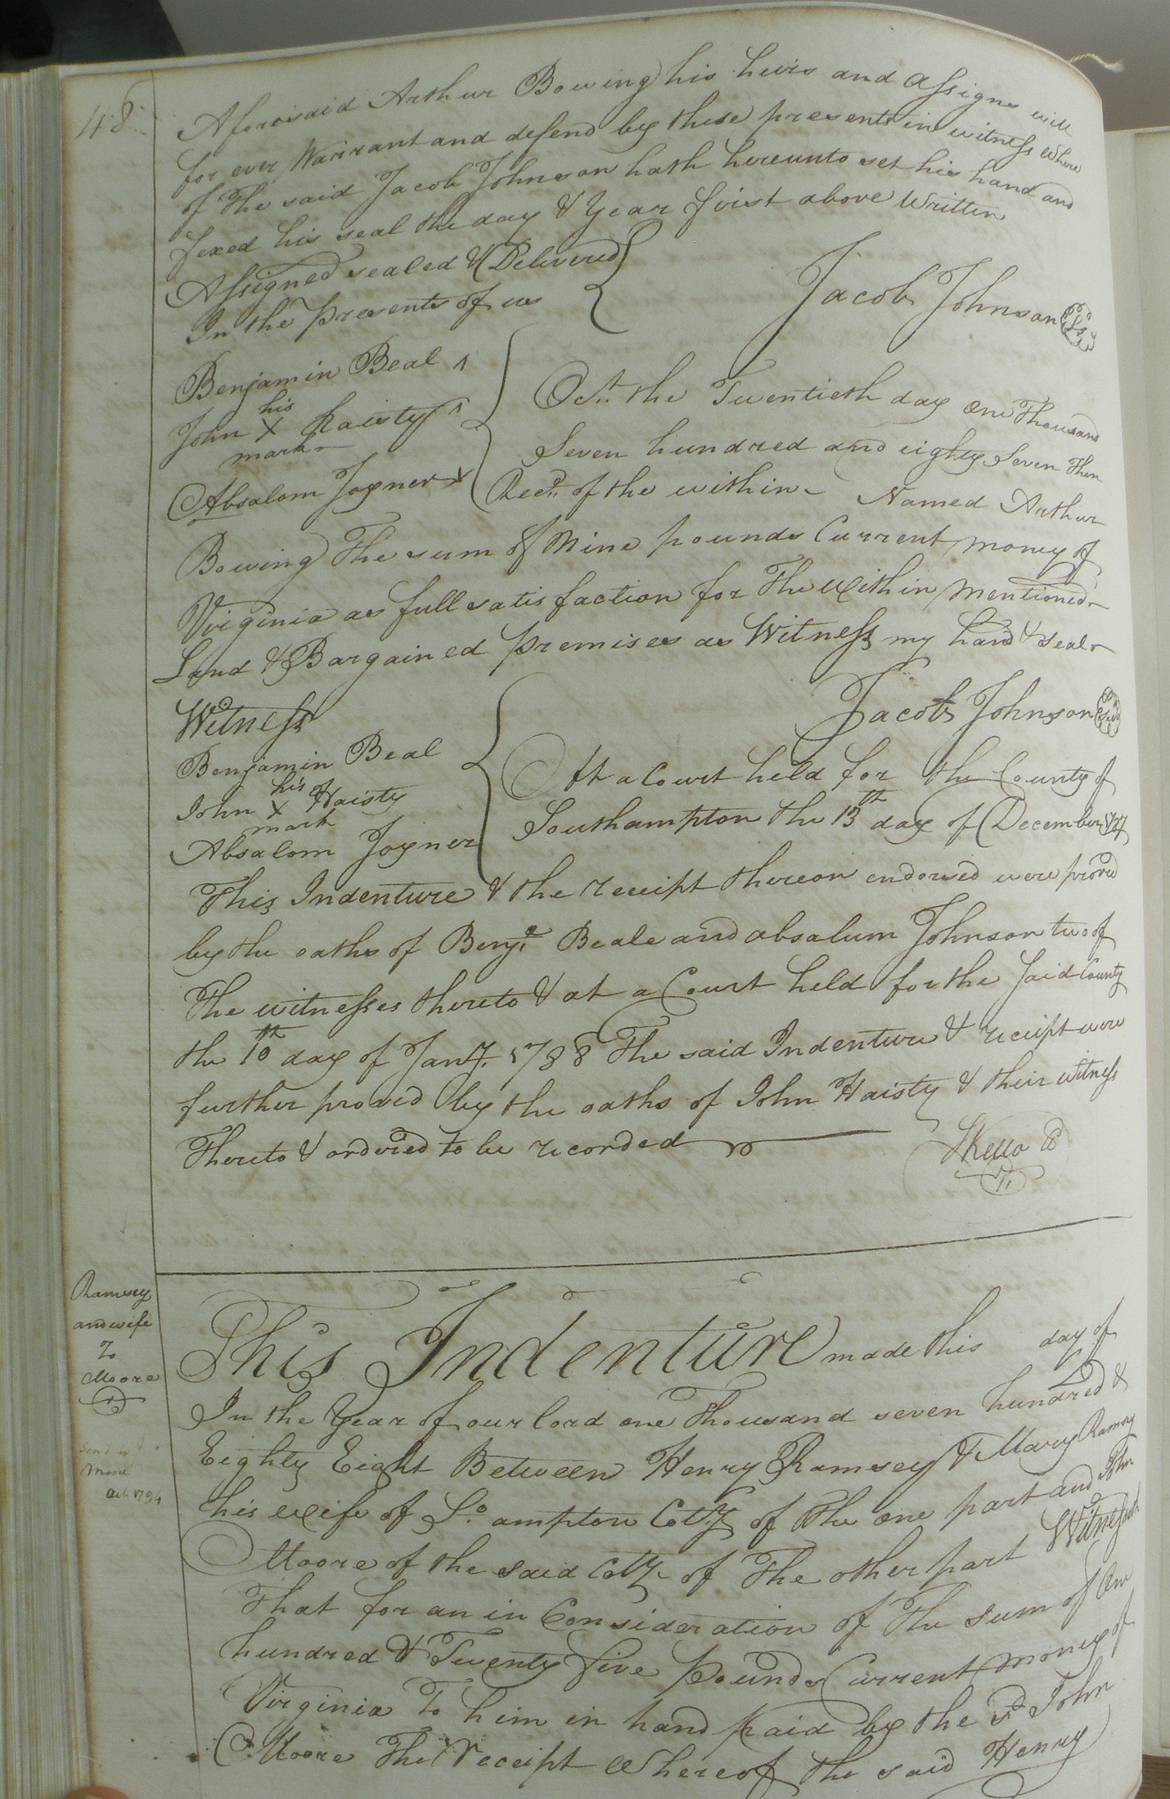 48
Aforesaid Arthur Bowing his heirs and assigns will
for ever Warrant and defend by these presents in witness where
of The said Jacob Johnson hath hereunto set his hand and
fixed his seal the day & Year first above Written
Assigned sealed & Delivered
In the presents of us
Jacob Johnson Ls
Benjamin Beal
John his X mark Haisty
Absalom Joyner
Oct. the Twentieth day one Thousand
Seven hundred and eighty Seven then
Recd. of the within Named Arthur
Bowing The sum of Nine pounds Current money of
Virginia as full satisfaction for The within mentioned
Land & Bargained premises as Witness my hand & seal
Witness
Jacob Johnson
Benjamin Beal
John his X mark Haisty
Absalom Joyner
At a Court held for the County of
Southampton the 13th day of December
This Indenture & the receipt thereon endorsed were proved
by the oaths of Benja. Beale and absalum Johnson two of
The witnesses thereto & at a Court held for the said County
the 10th day of Jany. 1788 The said Indenture & receipt were
further proved by the oaths of John Haisty & their witness
Thereto & ordered to be recorded
Ramsey
and wife
To
Moore
This Indenture made this day of
In the Year of our lord one Thousand seven hundred &
Eighty Eight Between Henry Ramsey & Mary Ramsey
his wife of So.ampton Coty of the one part and John
Moore of the said Coty of The other part Witnesseth
That for an in Consideration of The sum of One
hundred & Twenty five pounds Current money of
Virginia To him in hand paid by the sd. John
Moore The receipt Whereof the said Henry